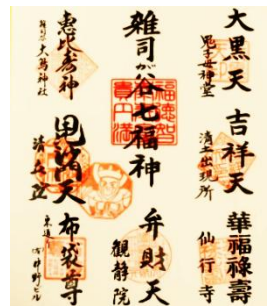 大黒天
鬼子母神堂
吉祥天
清土出現所
華福禄壽
仙行寺
雑司が谷七福神
弁財天
觀静院
恵比寿神
大鳥神社
毘沙門天
清立院
布袋尊